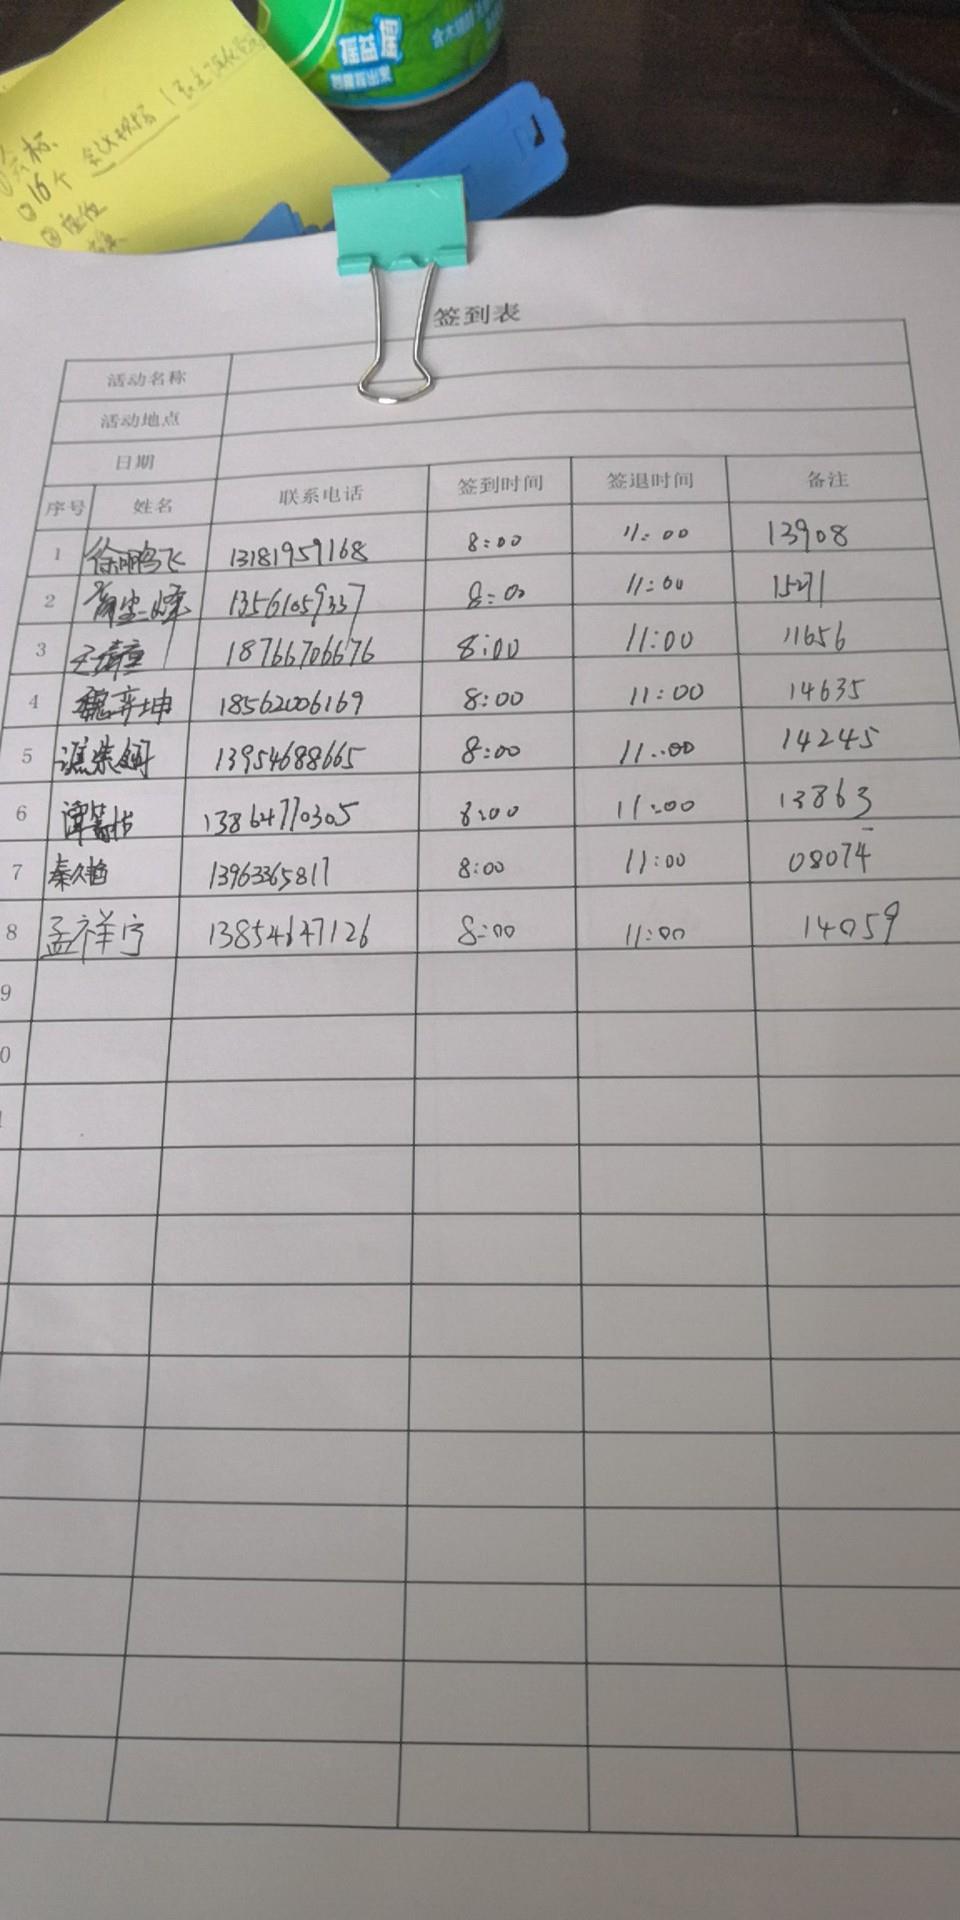 益
六标.
16个 会议现场
座位
签到表
活动名称
活动地点
日期
序号 姓名 联系电话 签到时间 签退时间 备注
1 徐鹏飞 13181959168 8:00 11:00 13908
2 13561059337 8:00 11:00 15271
3 18766706676 8:00 11:00 11656
4 魏弈坤 18562006169 8:00 11:00 14635
5 13954688665 8:00 11:00 14245
6 13864770305 8:00 11:00 13863
7 秦久 13963365817 8:00 11:00 08074
8 孟祥宁 13854647126 8:00 11:00 14059
9
0